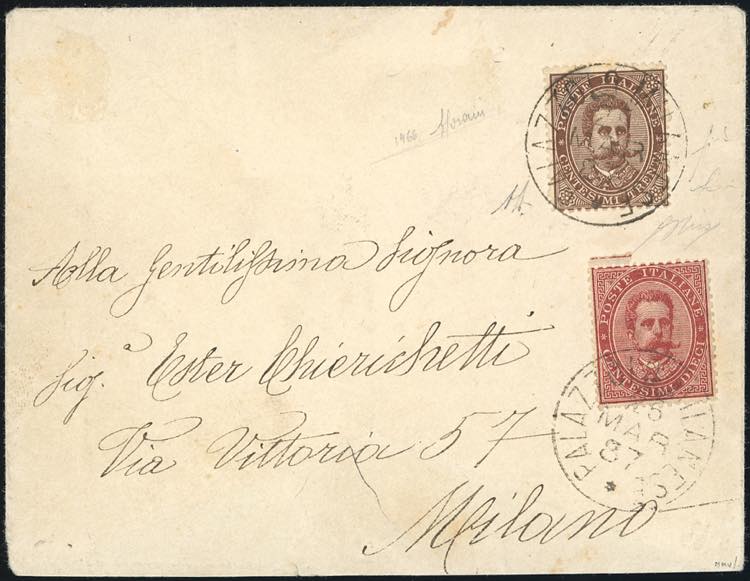 POSTE ITALIANE
CENTESIMI TRENTA
PALAZZ
MILANESE
MAR
1966
Alla Gentilissima Signora
Sig.ª Ester Chierichetti
Via Vittoria 57
Milano
POSTE ITALIANE
CENTESIMI DIECI
PALAZZ
MILANES
MAR
87